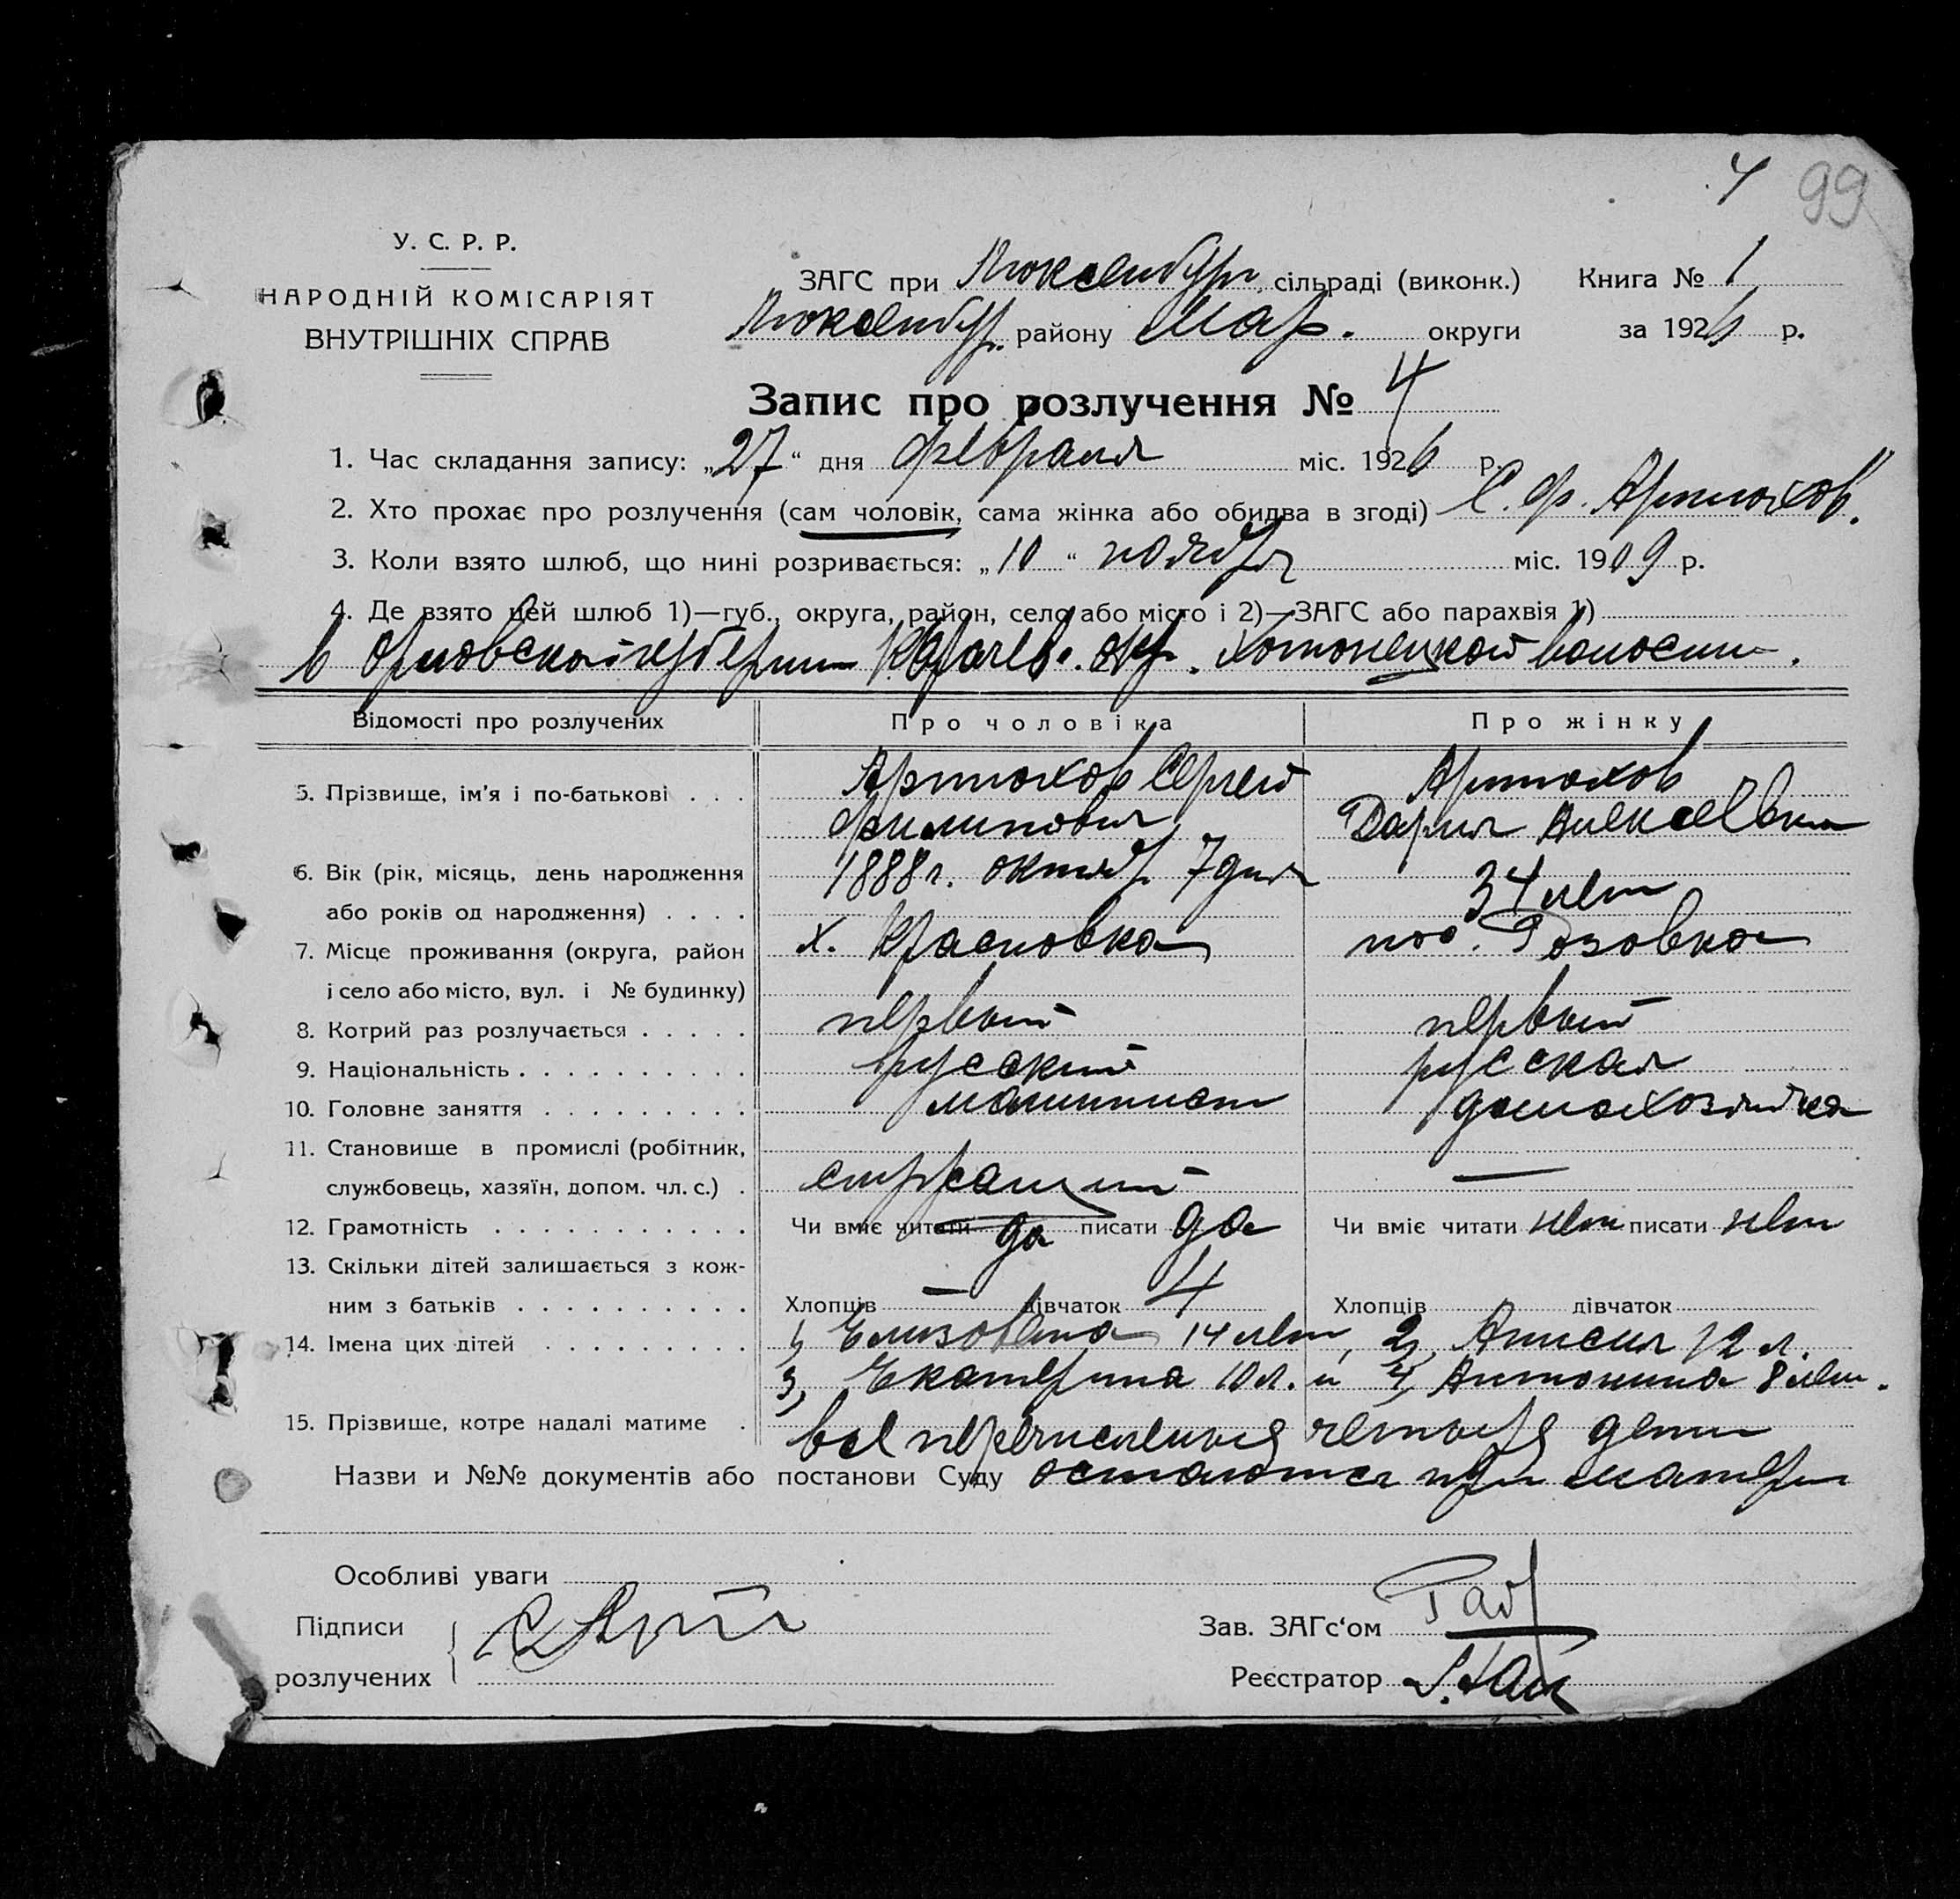 4 99
У. С. Р. Р.
НАРОДНІЙ КОМІСАРІЯТ
ВНУТРІШНІХ СПРАВ
ЗАГС при Люксембург. сільраді (виконк.) Книга № 1
Люксембург. району Мар. округи за 1926 р.
Запис про розлучення № 4
1. Час складання запису: „27“ дня февраля міс. 1926 р.
2. Хто прохає про розлучення (сам чоловік, сама жінка або обидва в згоді) С. Ф. Артюхов.
3. Коли взято шлюб, що нині розривається: „10“ ноября міс. 1909 р.
4. Де взято цей шлюб 1)—губ., округа, район, село або місто і 2)—ЗАГС або парахвія 1)
в Орловской губернии Карачев. окр. Хотонецкой волости.
Відомості про розлучених Про чоловіка Про жінку
5. Прізвище, ім'я і по-батькові . . . Артюхов Сергей Артюхов
Филипович Дария Алексеевна
6. Вік (рік, місяць, день народження 1888 г. октяб. 7 дня
або років од народження) . . . . 34 лет
7. Місце проживання (округа, район х. Красновка пос. Розовка
і село або місто, вул. і № будинку)
8. Котрий раз розлучається . . . . . первый первый
9. Національність . . . . . . . . . . русский русская
10. Головне заняття . . . . . . . . . машинист домохозяйка
11. Становище в промислі (робітник,
службовець, хазяїн, допом. чл. с.) . —
12. Грамотність . . . . . . . . . . . Чи вміє читати да писати да Чи вміє читати нет писати нет
13. Скільки дітей залишається з кож-
ним з батьків . . . . . . . . . . Хлопців — дівчаток 4 Хлопців дівчаток
14. Імена цих дітей . . . . . . . . . 1, Елизовета 14 лет, 2, Анисия 12 л.
3, Екатерина 10 л. и 4, Антонина 8 лет.
15. Прізвище, котре надалі матиме . все перечисленые четыре дети
Назви и №№ документів або постанови Суду остаются при матери
Особливі уваги
Підписи Зав. ЗАГс‘ом
розлучених Реєстратор